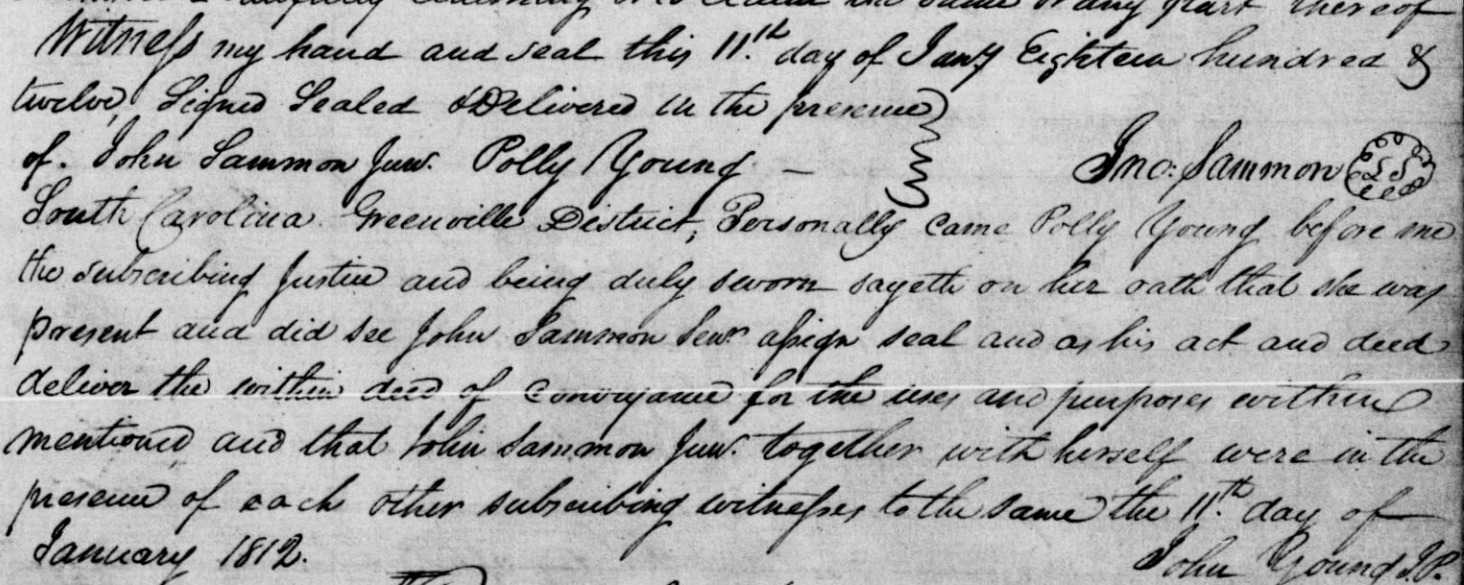 lawfully claiming or to claim the same or any part thereof
Witness my hand and seal this 11th day of Jany Eighteen hundred &
twelve, Signed Sealed & Delivered in the presence
of. John Sammon Junr. Polly Young — Jno: Sammon LS
South Carolina Greenville District, Personally came Polly Young before me
the subscribing Justice and being duly sworn sayeth on her oath that she was
present and did see John Sammon Senr assign seal and as his act and deed
deliver the within deed of conveyance for the uses and purposes within
mentioned and that John Sammon Junr. together with herself were in the
presence of each other subscribing witnesses to the same the 11th day of
January 1812. John Young J.P.